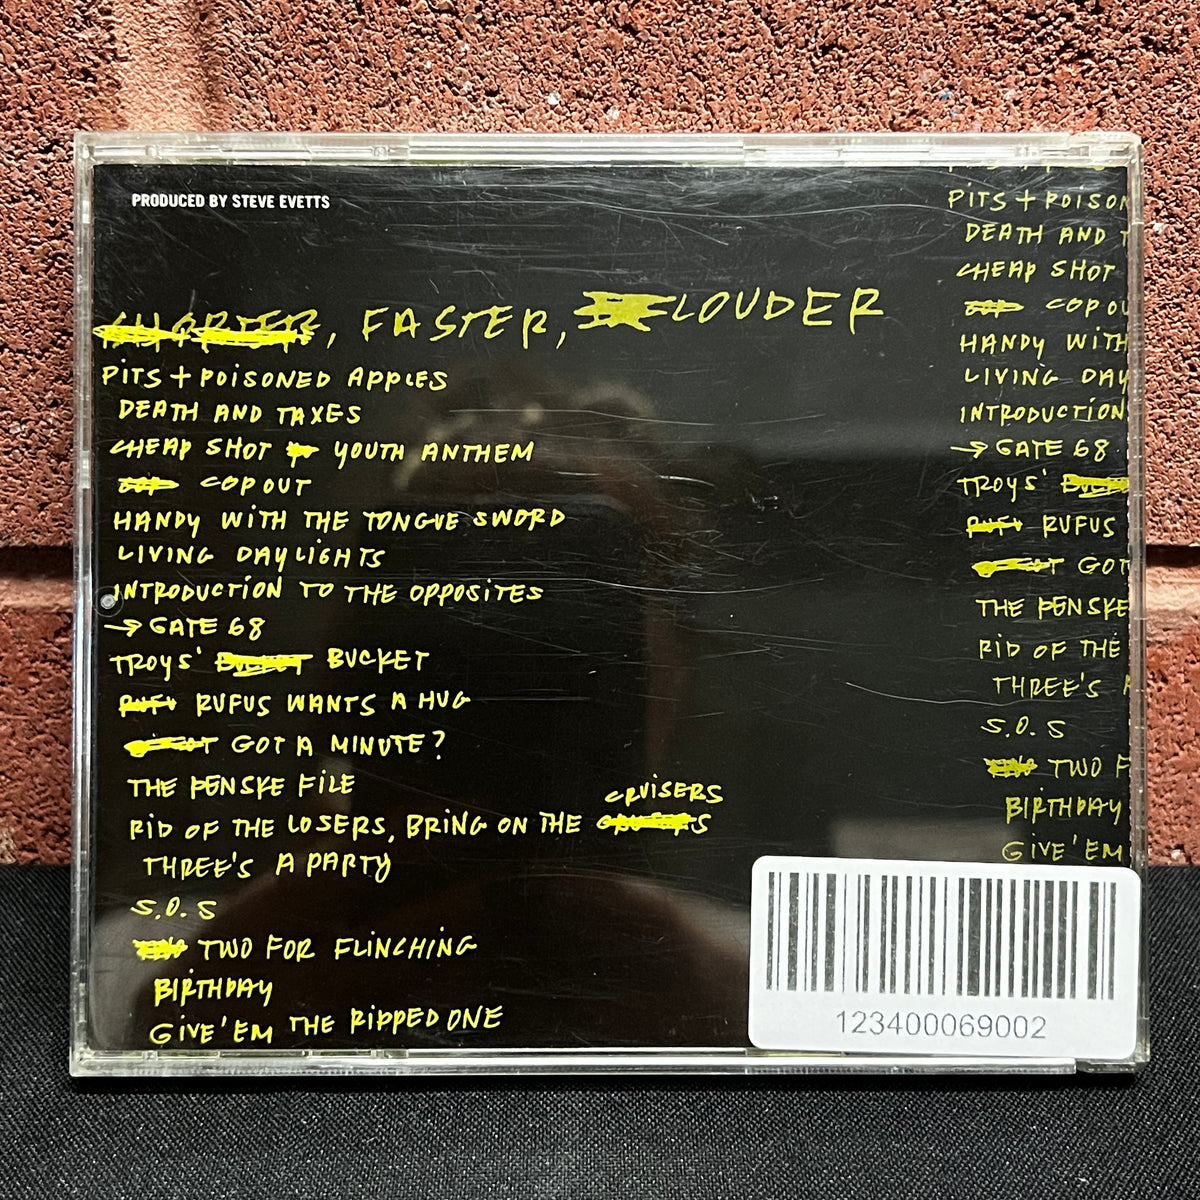 PRODUCED BY STEVE EVETTS
SHORTER, FASTER, LOUDER
PITS + POISONED APPLES
DEATH AND TAXES
CHEAP SHOT YOUTH ANTHEM
COP OUT
HANDY WITH THE TONGUE SWORD
LIVING DAYLIGHTS
INTRODUCTION TO THE OPPOSITES
→ GATE 68
TROYS' BUCKET BUCKET
RUFU RUFUS WANTS A HUG
GOT A MINUTE?
THE PENSKE FILE
CRUISERS
RID OF THE LOSERS, BRING ON THE
THREE'S A PARTY
S.O.S
TWO FOR FLINCHING
BIRTHDAY
GIVE 'EM THE RIPPED ONE
PITS + POISON
DEATH AND T
CHEAP SHOT
COP OU
HANDY WITH
LIVING DAY
INTRODUCTION
→ GATE 68
TROYS' BUCKE
RUFU RUFUS
GOT
THE PENSKE
RID OF THE
THREE'S A
S.O.S
TWO F
BIRTHDAY
GIVE 'EM
123400069002